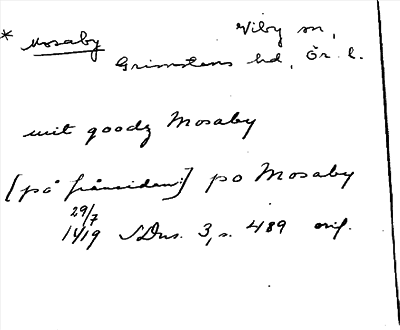 * Mosaby Viby sn,
Grimstens hd, Ör. l.
mit goodz Mosaby
[på frånsidan:] po Mosaby
29/7
1419 SDns. 3, s. 489 orig.